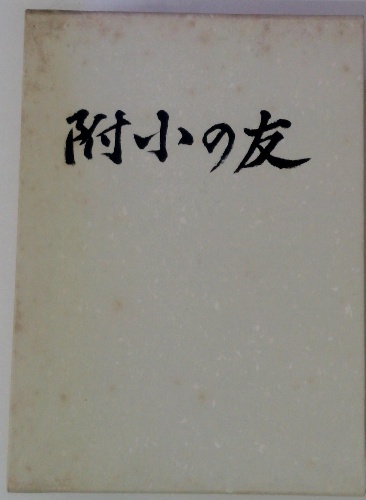 附小の友